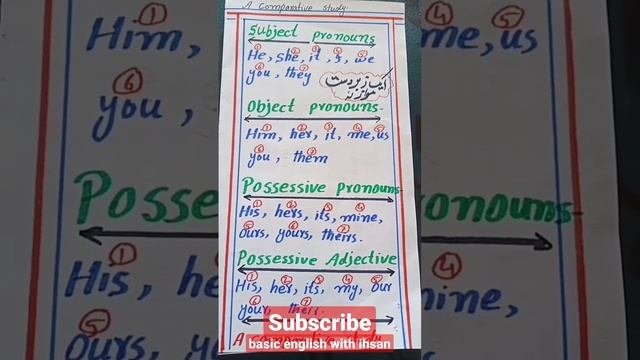 A comparative study
Subject pronouns
① ② ③ ④ ⑤
He, she, it, I, we
⑥ ⑦
you, they
ایک زبردست
موازنہ
Object pronouns-
① ② ③ ④ ⑤
Him, her, it, me, us
⑥ ⑦
you, them
Possessive pronouns-
① ② ③ ④
His, hers, its, mine,
⑤ ⑥ ⑦
Ours, yours, theirs.
Possessive Adjective
① ② ③ ④ ⑤
His, her, its, my, our
⑥ ⑦
your, their.
A comparative study
Subscribe
basic english with ihsan